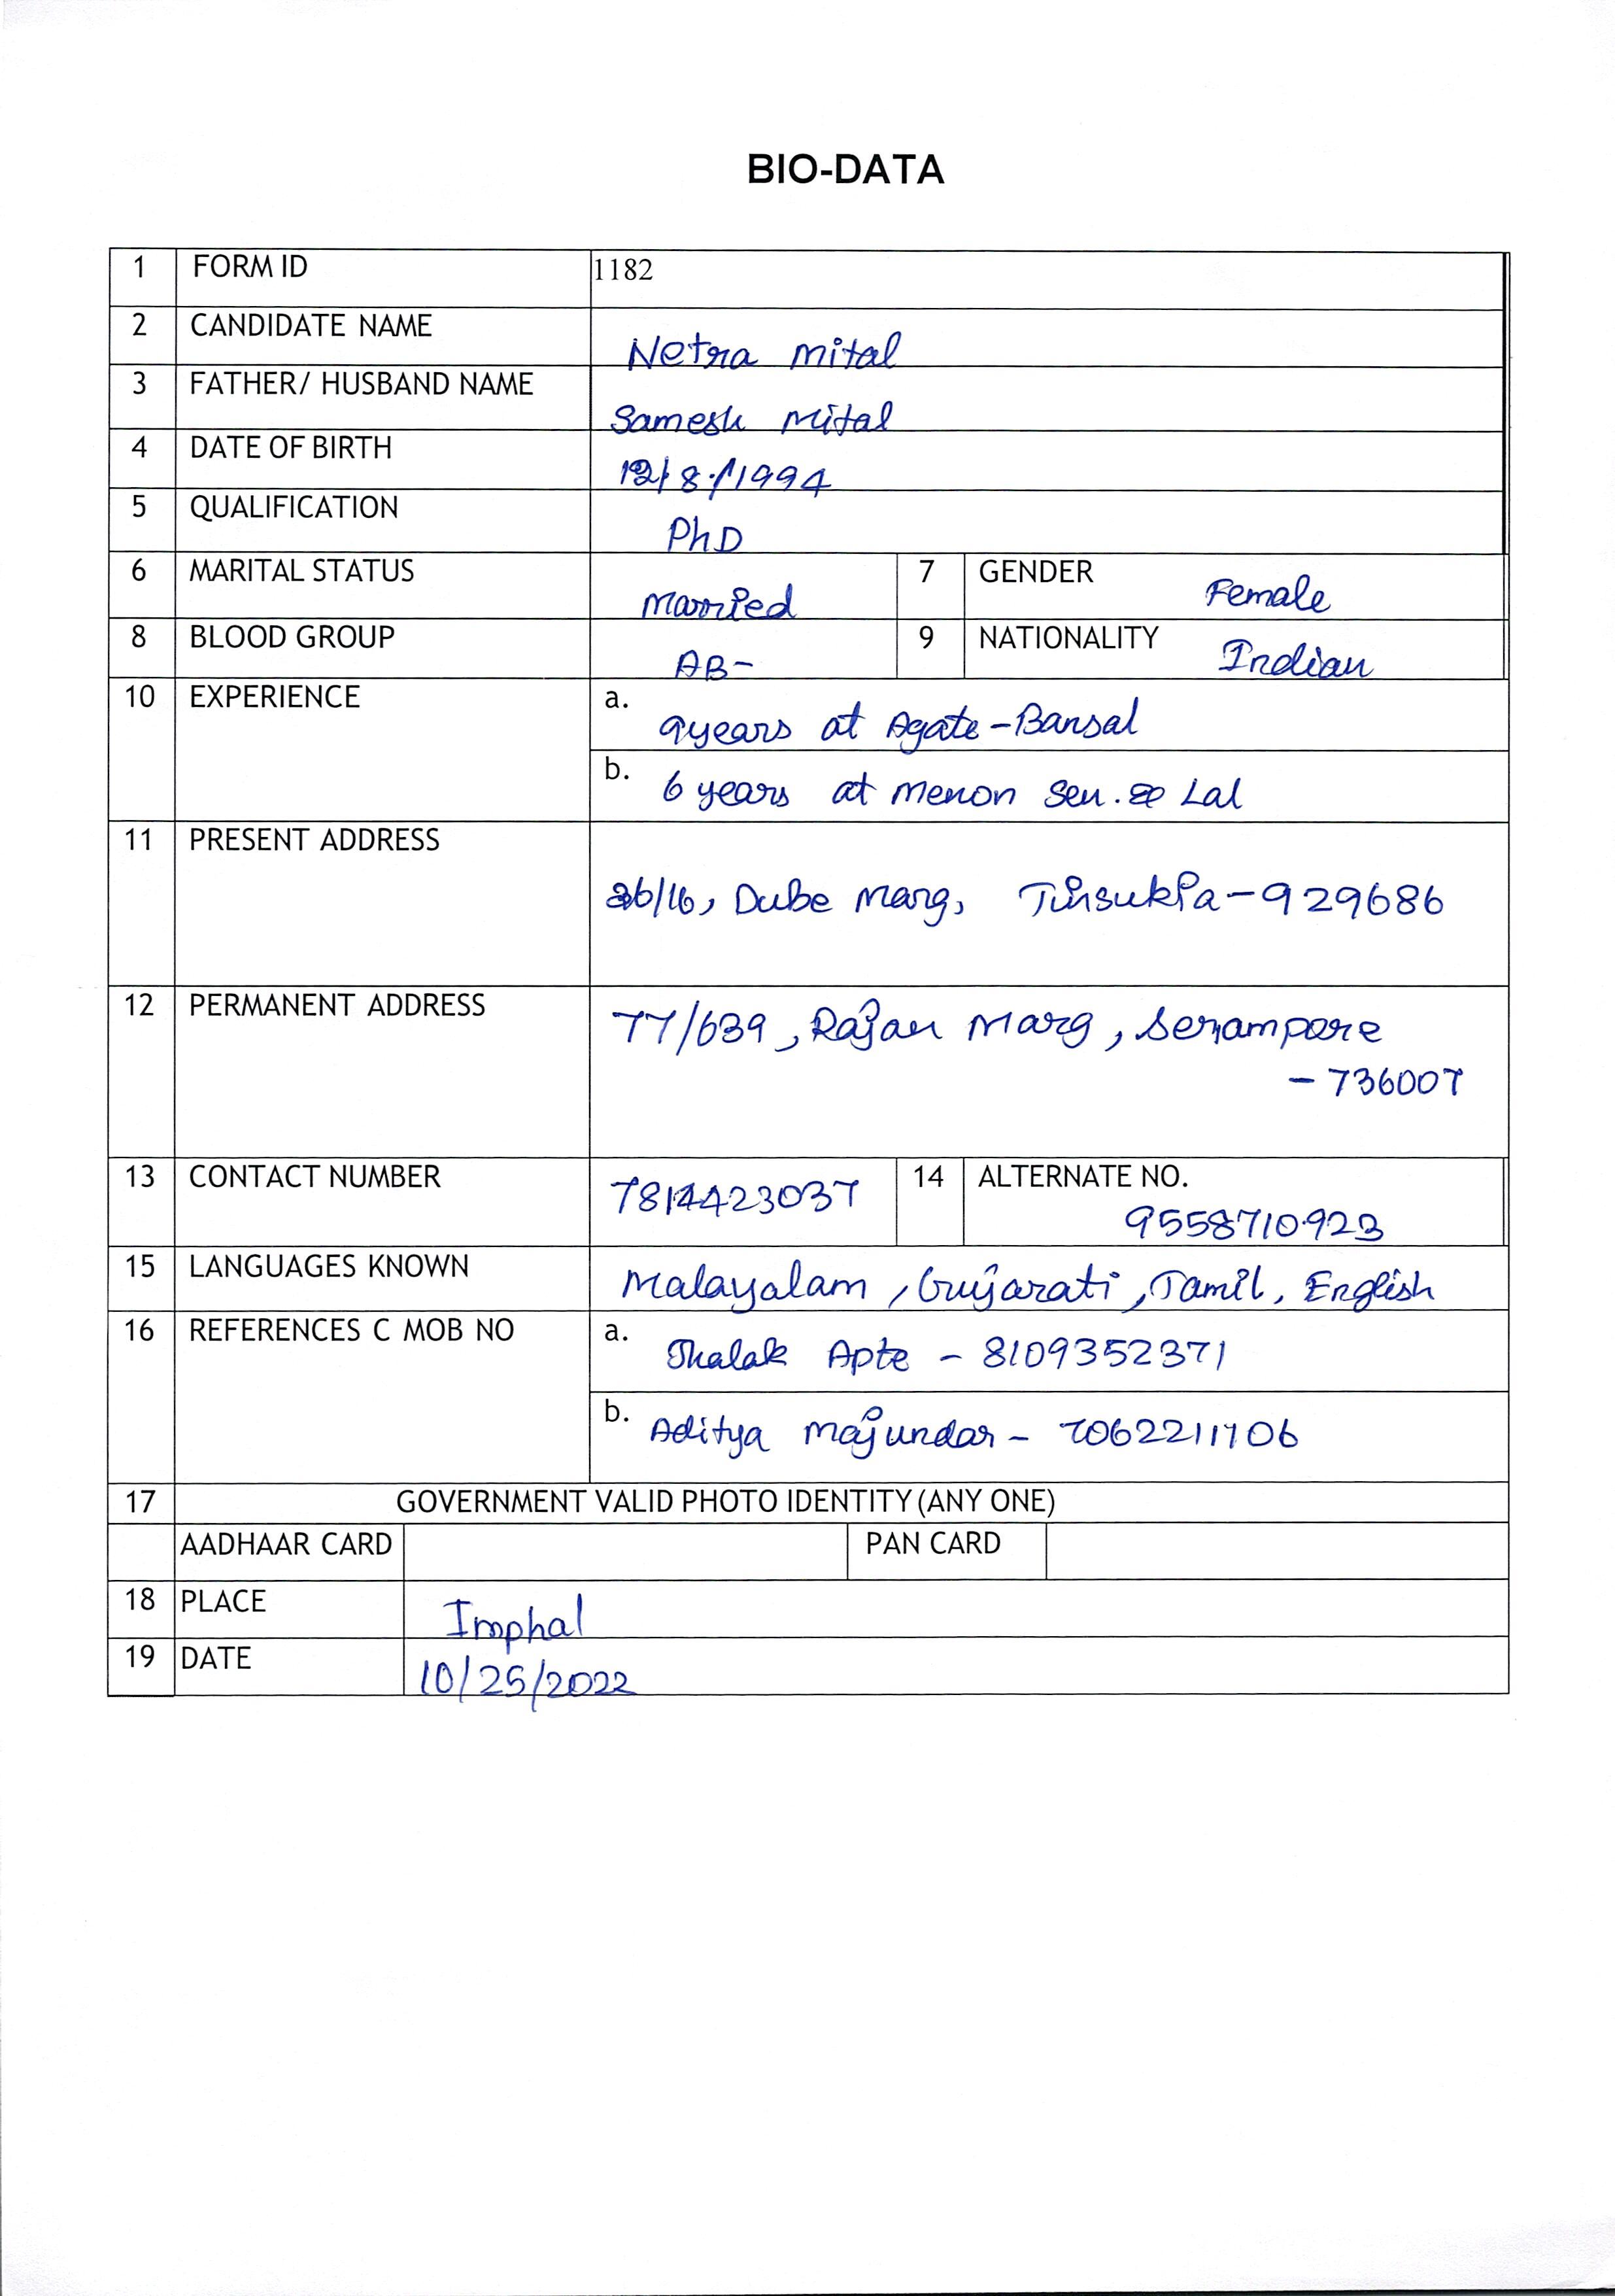 BIO-DATA
1 FORM ID 1182
2 CANDIDATE NAME Netra Mital
3 FATHER/ HUSBAND NAME Samesh Mital
4 DATE OF BIRTH 12/8/1994
5 QUALIFICATION PhD
6 MARITAL STATUS Married 7 GENDER Female
8 BLOOD GROUP AB- 9 NATIONALITY Indian
10 EXPERIENCE a. 9years at Agate-Bansal
b. 6 years at Menon Sen. & Lal
11 PRESENT ADDRESS 36/16, Dube Marg, Tinsukia-929686
12 PERMANENT ADDRESS 77/639, Rajan Marg, Serampore
- 736007
13 CONTACT NUMBER 7814423037 14 ALTERNATE NO.
9558710923
15 LANGUAGES KNOWN Malayalam, Gujarati, Tamil, English
16 REFERENCES C MOB NO a. Thalak Apte - 8109352371
b. Aditya Majundar - 7062211706
17 GOVERNMENT VALID PHOTO IDENTITY (ANY ONE)
AADHAAR CARD PAN CARD
18 PLACE Imphal
19 DATE 10/25/2022